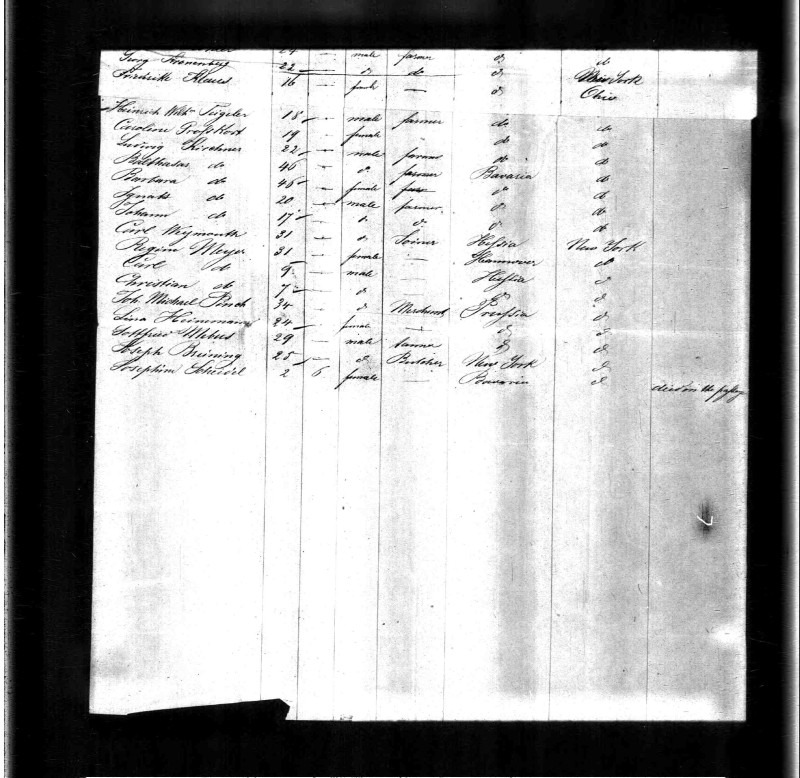 24 — male farmer d do
Georg Kronenberg 22 — d do d New York
Friedrike Klaus 16 — femle — d Ohio
Heinrich Wilhm Tegeler 18 — male farmer do do
Caroline Proskort 19 — female — do do
Ludwig Kirchner 22 — male farmer do do
Balthasar do 46 — d farmer Bavaria do
Barbara do 46 — female d do
Ignatz do 20 — male farmer d do
Johann do 17 — d d d do
Carl Weymouth 31 — d Joiner Hessia New York
Regine Meyer 31 — female — Hannover do
Carl do 9 — male Hessia d
Christian do 7 — d d d
Joh. Michael Pinch 34 — d Merchant Preussia d
Lina Heinemann 24 — female — d d
Gottfried Mebus 29 — male tanner d d
Joseph Breining 25 — d Butcher New York d
Josephine Schindel 2 6 female — Bavaria d died on the passag